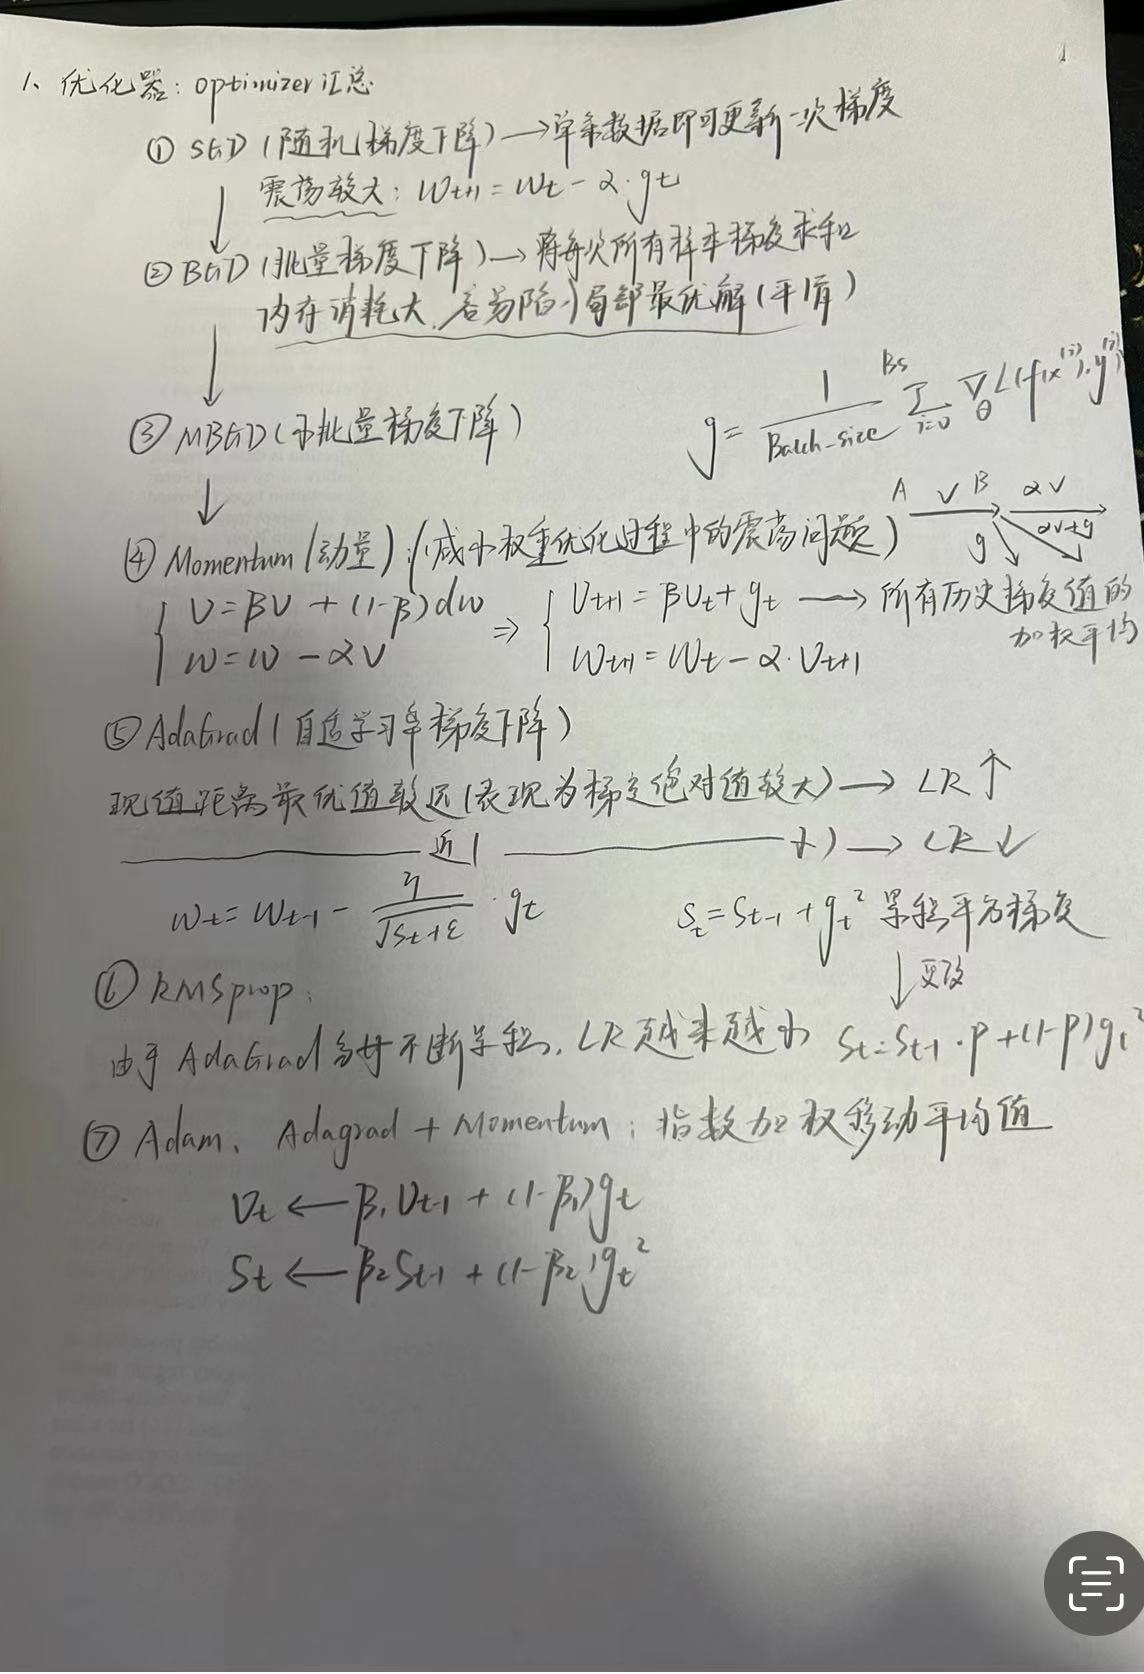 1、优化器: optimizer 汇总
① SGD (随机梯度下降) → 单条数据即可更新一次梯度
震荡较大: Wt+1 = Wt - α·gt
② BGD (批量梯度下降) → 将每次所有样本梯度求和
内存消耗大, 容易陷入局部最优解 (平滑)
③ MBGD (小批量梯度下降)
g = 1/Batch-size BS Σ i=0 ∇θ L(f(x^(i)), y^(i))
④ Momentum (动量): (减小权重优化过程中的震荡问题)
A V B αV
g αV+g
V = βV + (1-β)dw ⇒ Vt+1 = βVt + gt → 所有历史梯度值的
加权平均
W = W - αV Wt+1 = Wt - α·Vt+1
⑤ AdaGrad (自适学习率梯度下降)
现值距离最优值较远 (表现为梯度绝对值较大) → LR ↑
近( 小) → LR ↓
Wt = Wt-1 - η/√St+ε · gt St = St-1 + gt² 累积平方梯度
↓更改
⑥ RMSprop:
由于 AdaGrad 不断累积, LR 越来越小 St = St-1·ρ + (1-ρ)gt²
⑦ Adam、Adagrad + Momentum: 指数加权移动平均值
Vt ← β1Vt-1 + (1-β1)gt
St ← β2St-1 + (1-β2)gt²